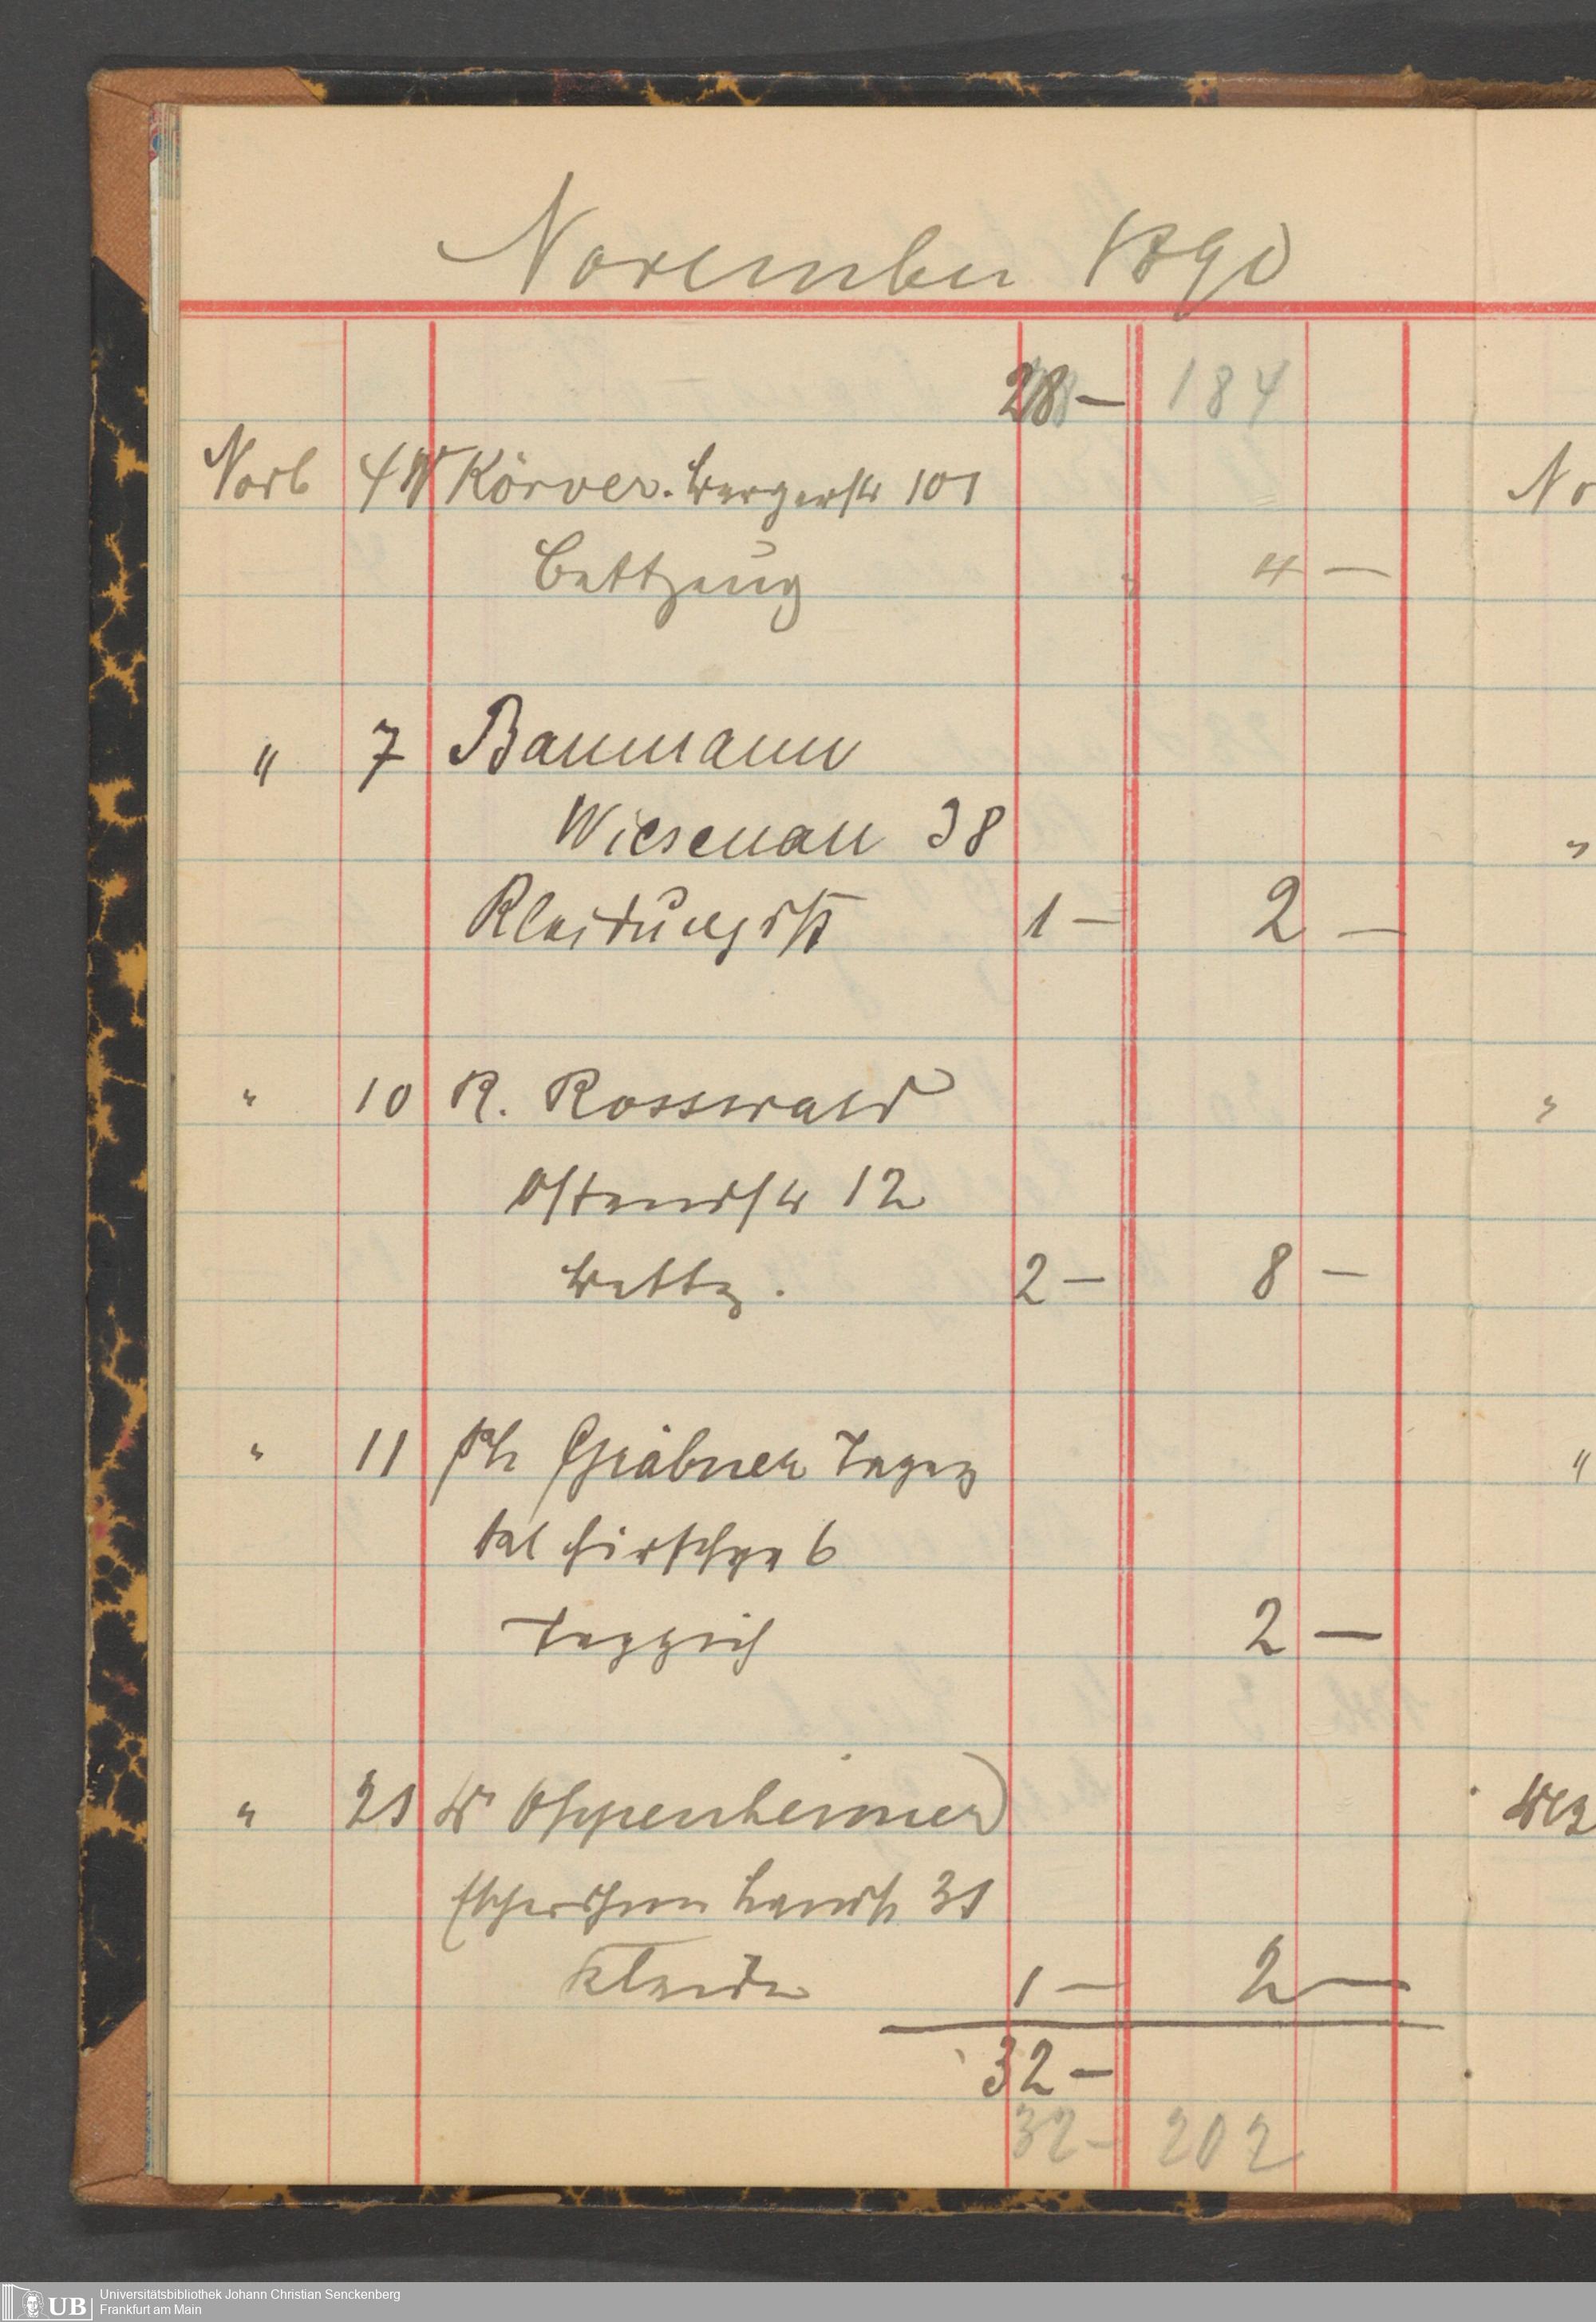 November 1890
28 — 184
Novb 4 W Körver. Bergerstr 101
Bettzeug " 4 —
" 7 Baumann
Wiesenau 38
Kleidungsst 1 — 2 —
" 10 R. Rosswald
Ostendstr 12
Bettz. 2 — 8 —
" 11 Ph Gräbner Tapez
kl Hirschgr 6
Teppich 2 —
" 21 W Oppenheimer
Eschersheim Landst 31
Kleider 1 — 2 —
32 —
32 — 202
No
"
"
"
UB Universitätsbibliothek Johann Christian Senckenberg
Frankfurt am Main